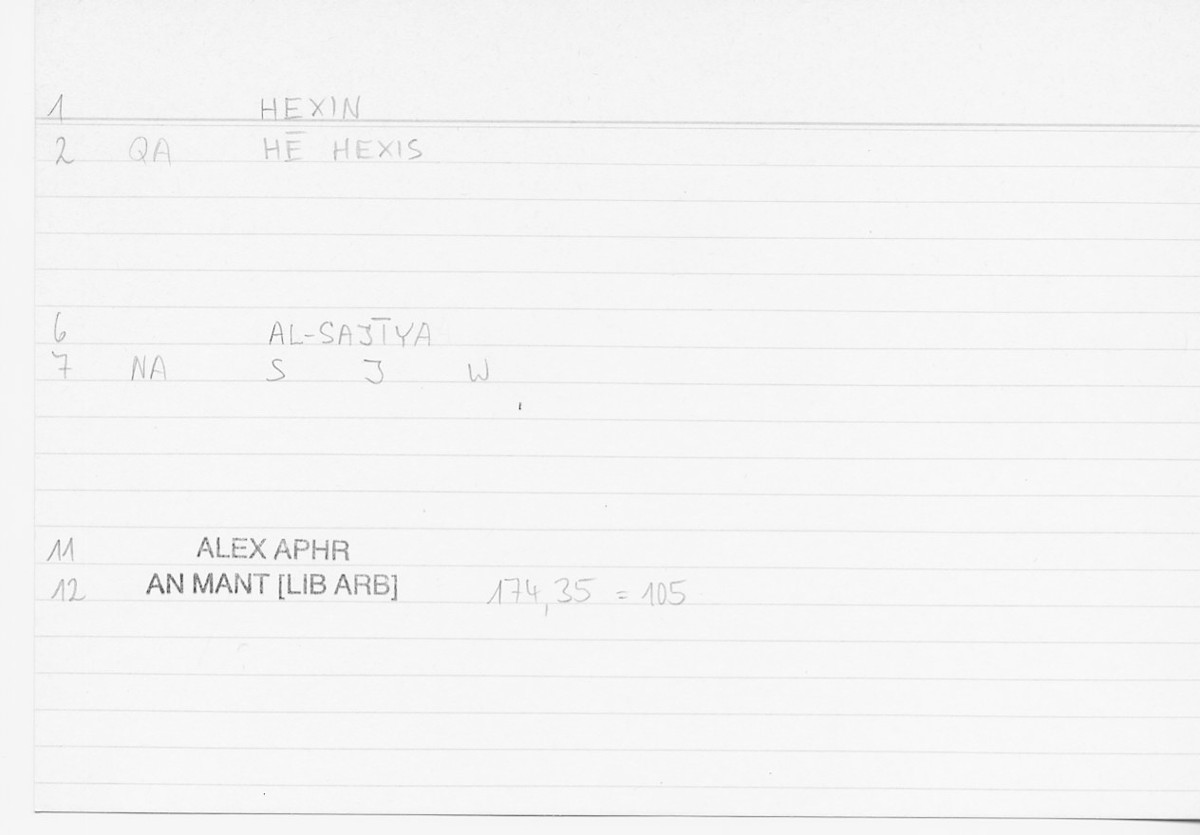 1 HEXIN
2 QA HĒ HEXIS
6 AL-SAJĪYA
7 NA S J W
11 ALEX APHR
12 AN MANT [LIB ARB] 174,35 = 105